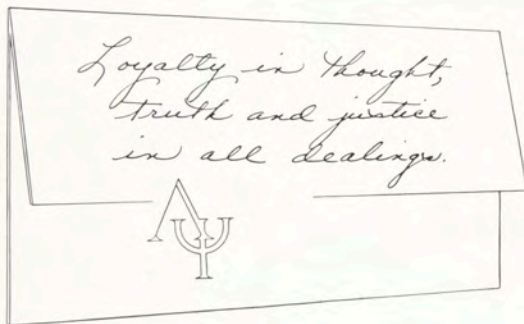 Loyalty in thought,
truth and justice
in all dealings.
ΛΨ